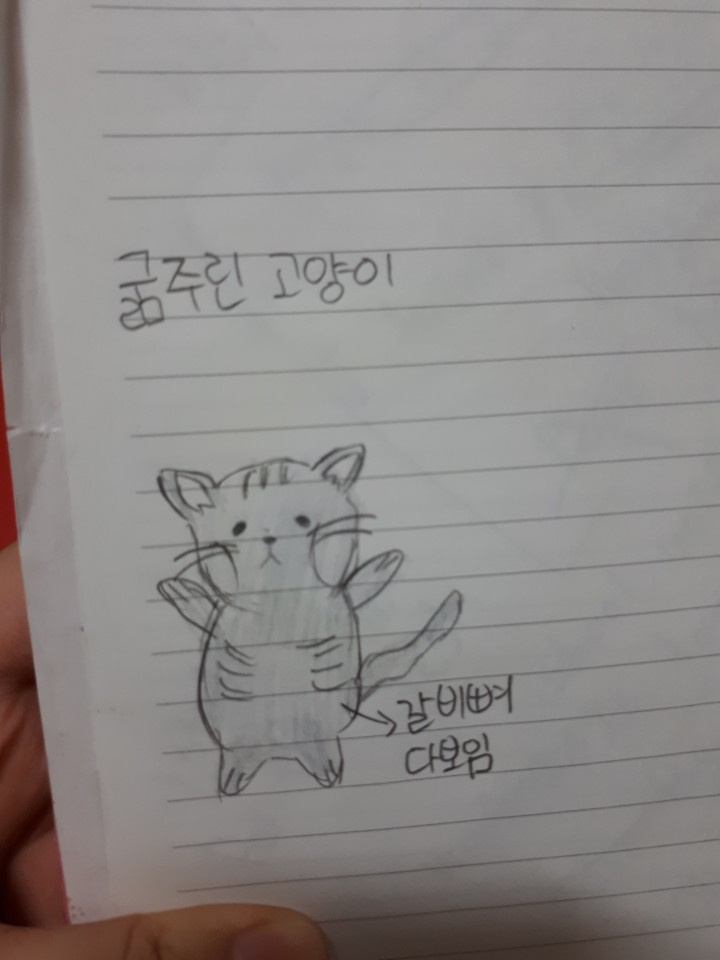 굶주린 고양이
갈비뼈
다보임